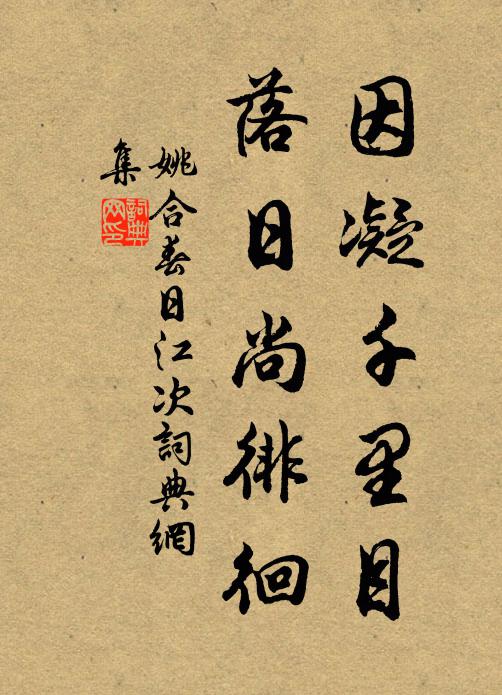 因凝千里目
落日尚徘徊
姚合春日江次詞典網
集
詞典
网印